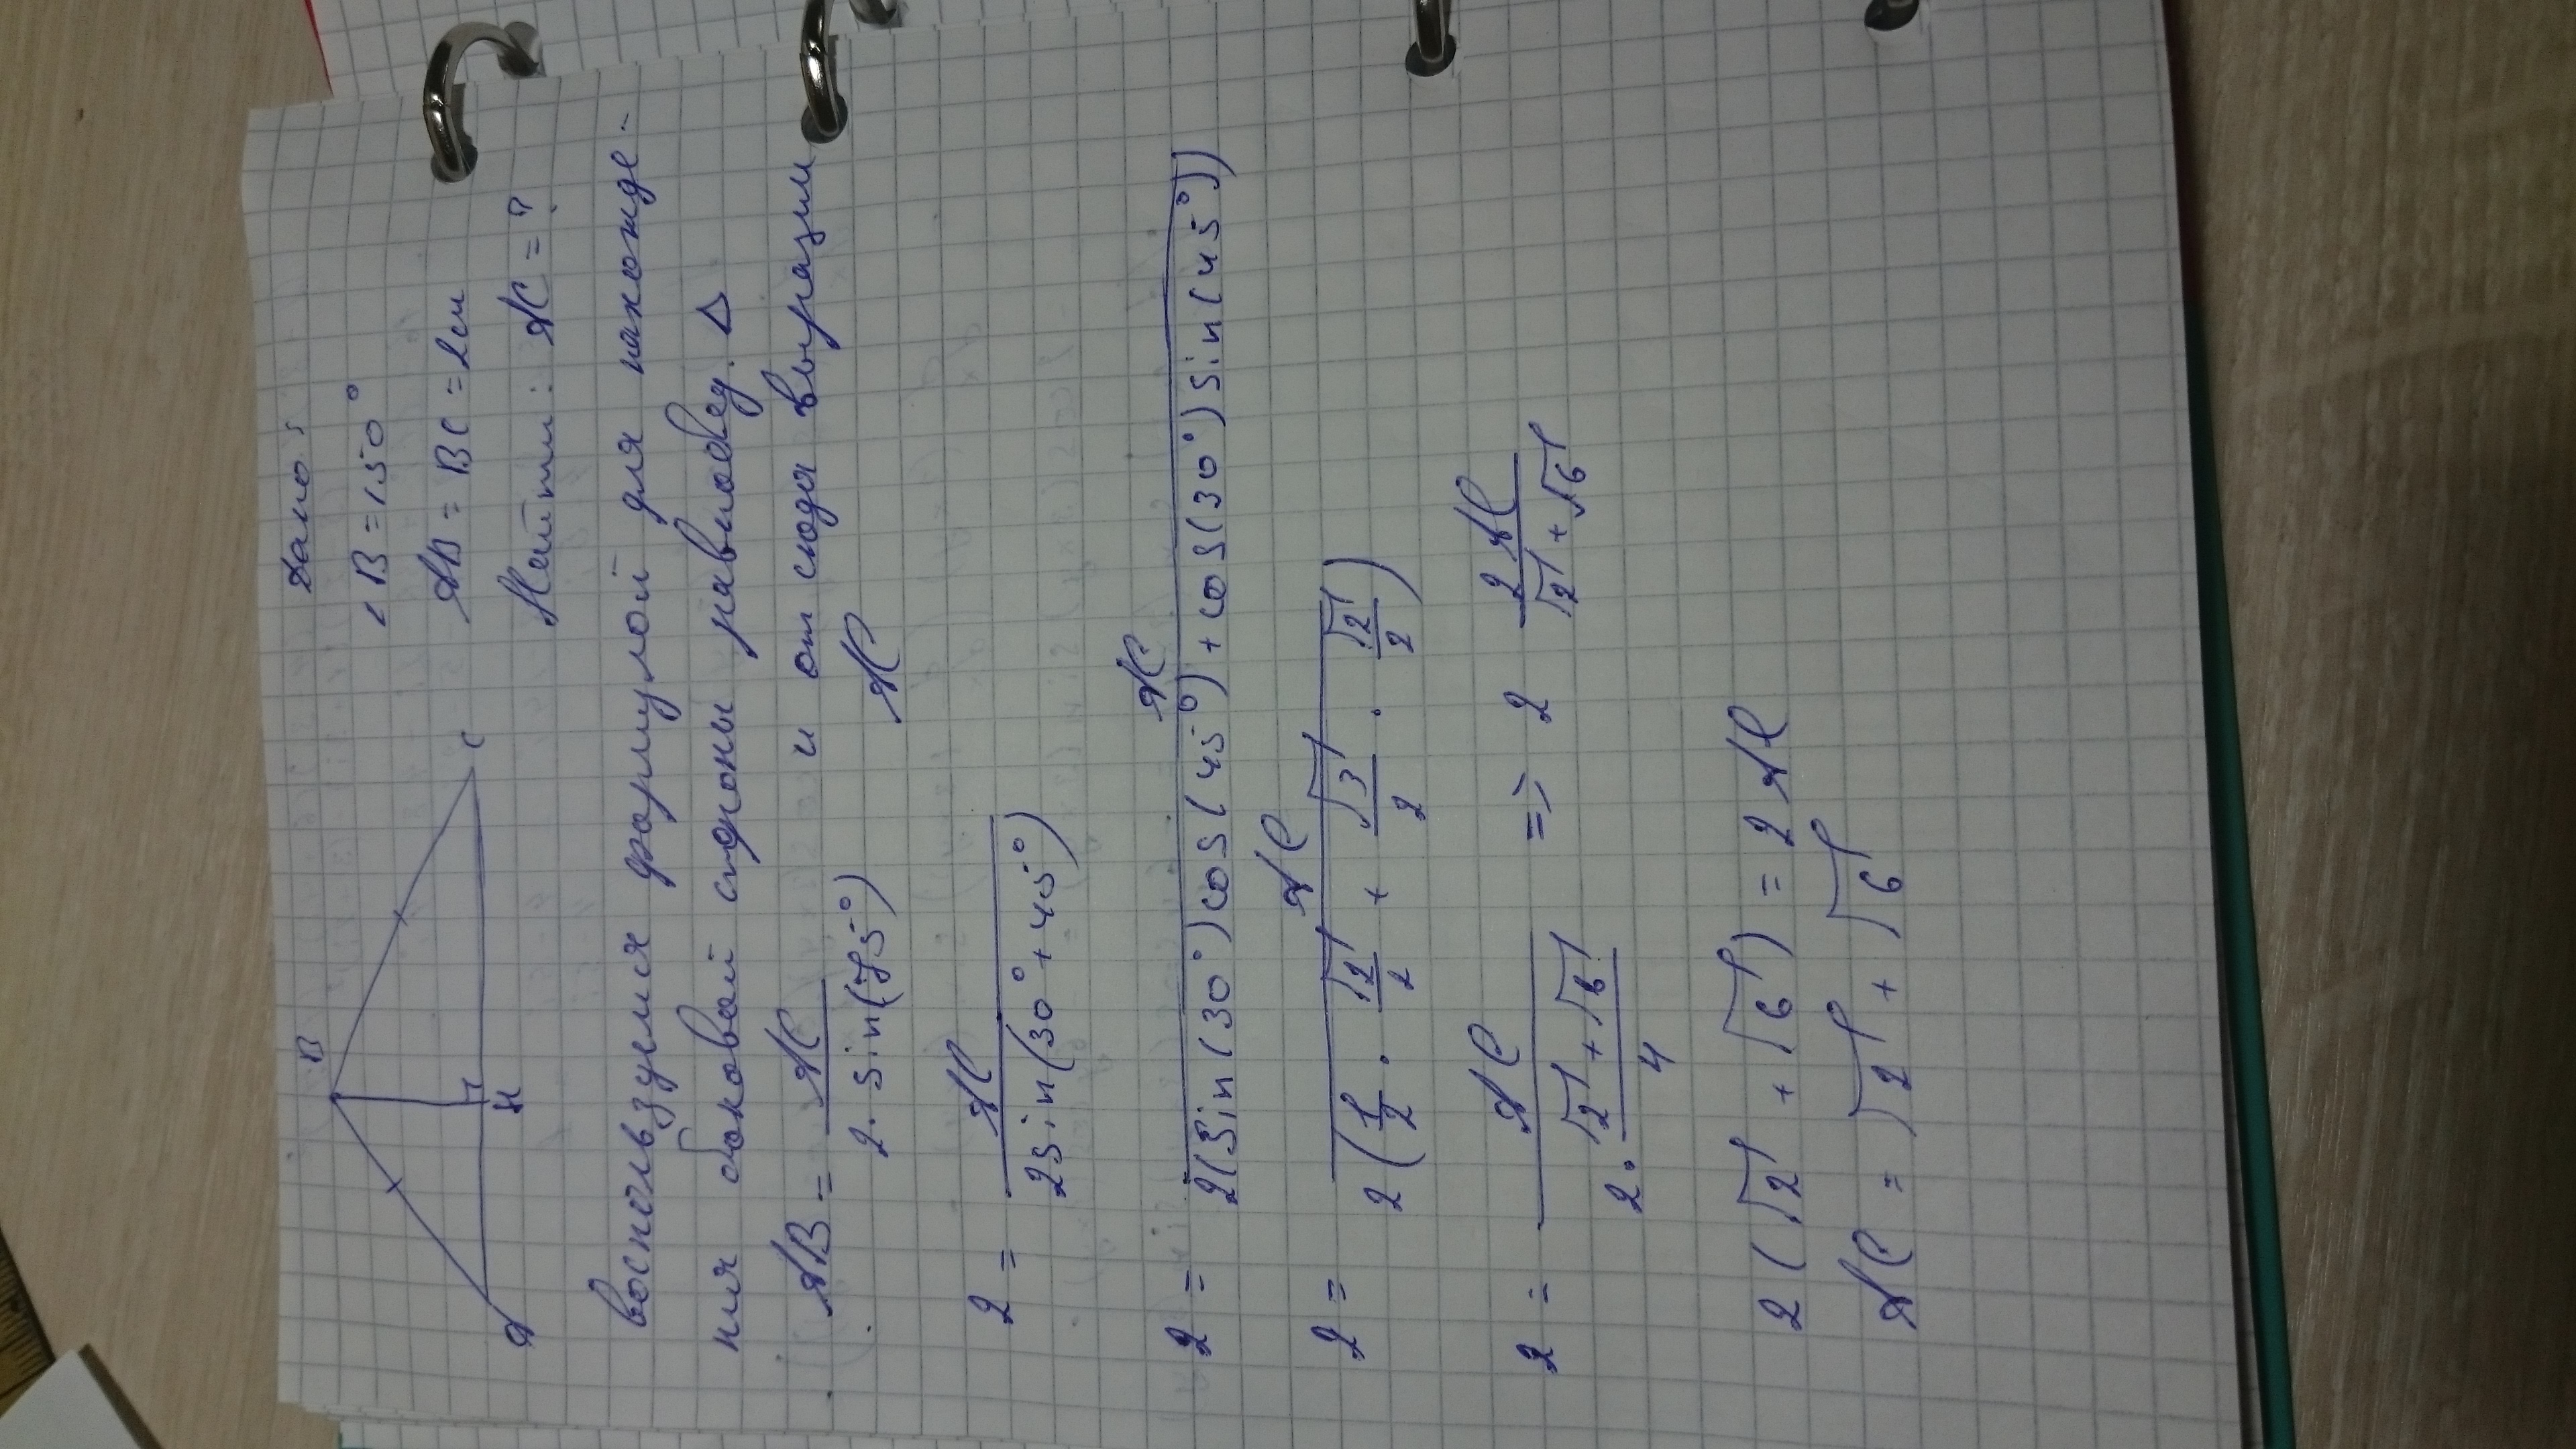 B
C
A
H
Дано:
∠B = 150°
AB = BC = 2см
Найти: AC = ?
воспользуемся формулой для нахожде-
ния боковой стороны равнобед. Δ
AB = AC / 2 · sin(75°) и от сюда выразим
AC
2 = AC / 2 sin(30° + 45°)
2 = AC / 2(sin(30°)cos(45°) + cos(30°)sin(45°))
2 = AC / 2(1/2 · √2/2 + √3/2 · √2/2)
2 = AC / 2 · √2 + √6 / 4 => 2 2AC / √2 + √6
2(√2 + √6) = 2AC
AC = √2 + √6